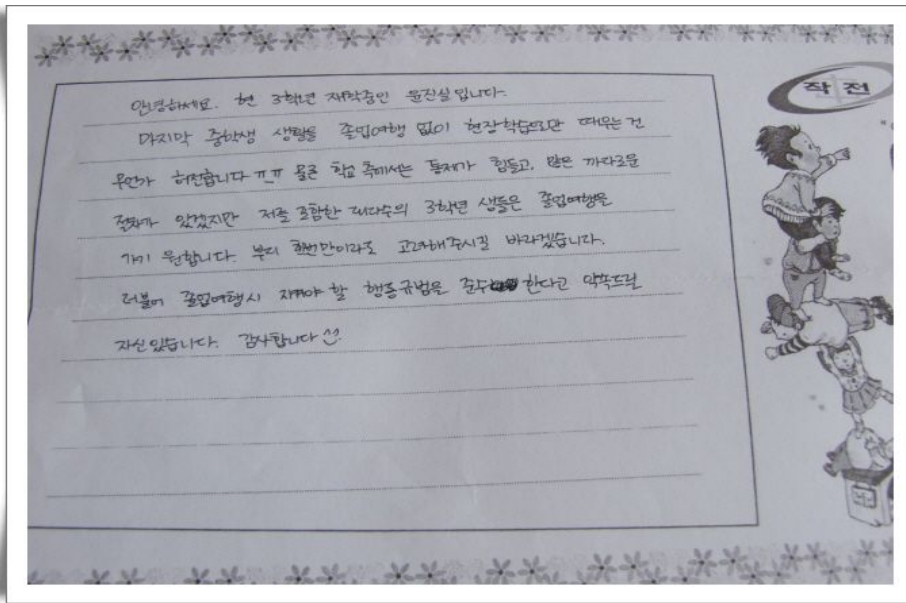 작전
안녕하세요. 현 3학년 재학중인 윤진실입니다.
마지막 중학생 생활을 졸업여행 없이 현장학습으로만 때우는건
무언가 허전합니다 ㅠㅠ 물론 학교 측에서는 통제가 힘들고, 많은 까다로운
절차가 있겠지만 저를 포함한 대다수의 3학년 생들은 졸업여행을
가기 원합니다. 부디 한번만이라도 고려해주시길 바라겠습니다.
더불어 졸업여행시 지켜야 할 행동규범을 준수 한다고 약속드릴
자신있습니다. 감사합니다 ^^.